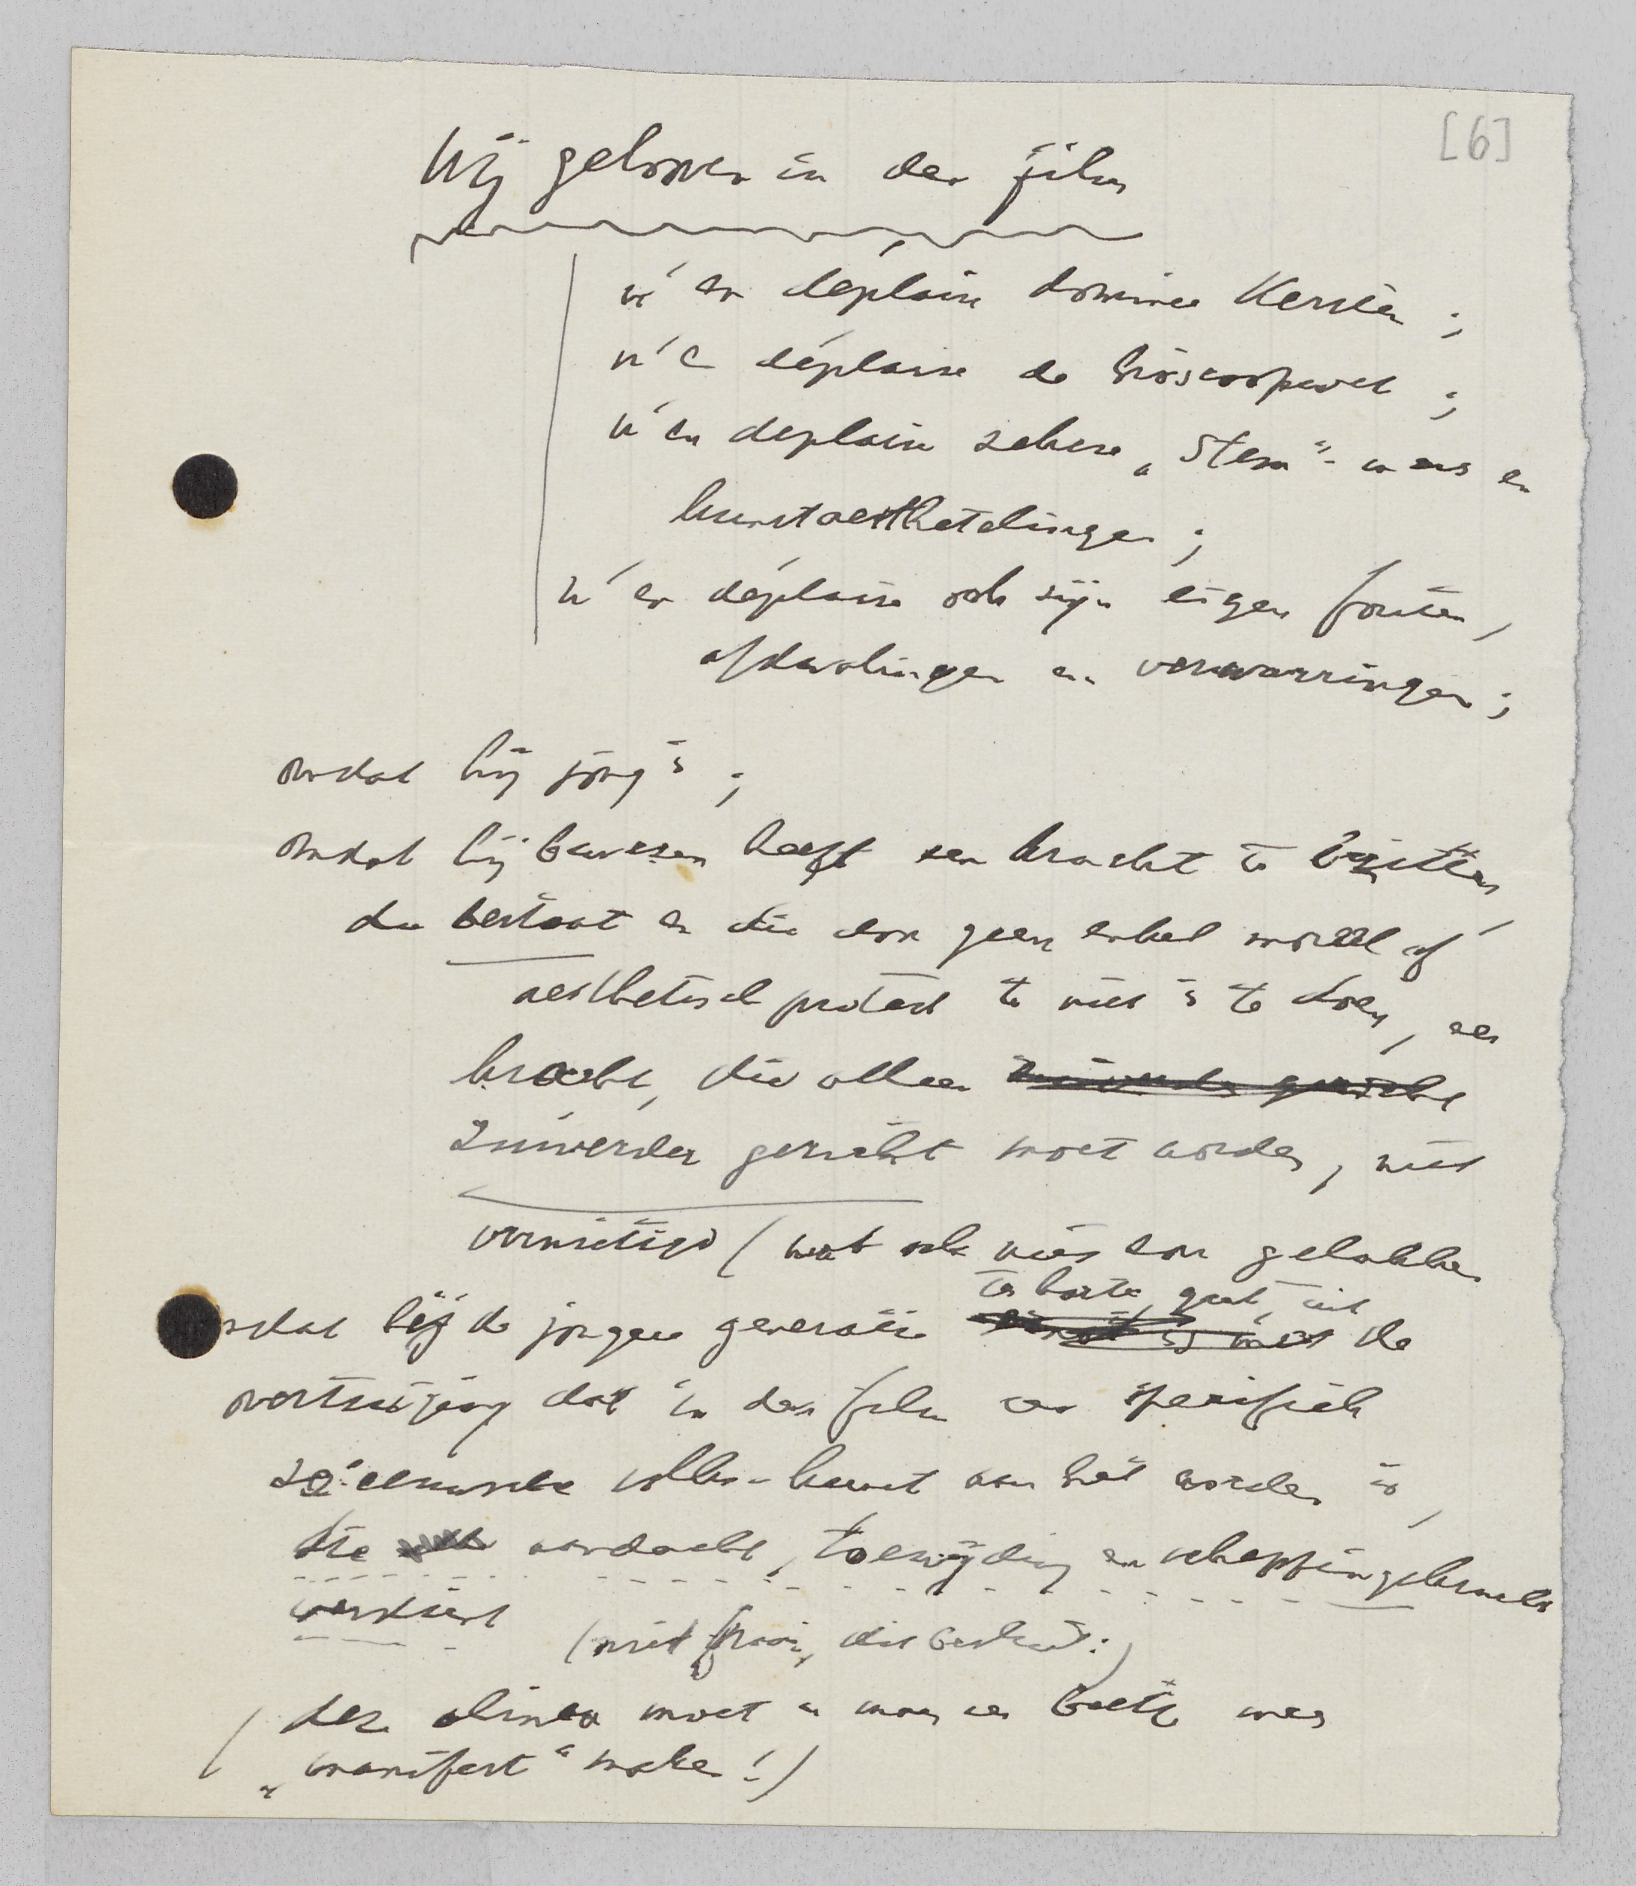 [6]
Wij gelooven in den film
n'en déplaise dominee Kersten ;
n'en déplaise de bioscoopwet ;
n'en déplaise zekere „Stem"- en
kunstaesthetelingen ;
n'en déplaise ook zijn eigen fouten,
afdwalingen en verwarringen ;
omdat hij jong is ;
omdat hij bewezen heeft een kracht te bezitten,
die bestaat en die door geen enkel moreel of
aesthetisch protest te niet is te doen, een
kracht, die alleen
zuiverder gericht moet worden, niet
vernietigd (wat ook niet zou gelukken
te harte gaat, uit
omdat hij de jongere generatie de
overtuiging dat in den film een specifiek
20e eeuwsche volks-kunst aan het worden is,
die aandacht, toewijding en scheppingskracht
verdient
(niet fraai, dit besluit:)
(deze alinea moet je maar een beetje meer
„manifest" maken!)